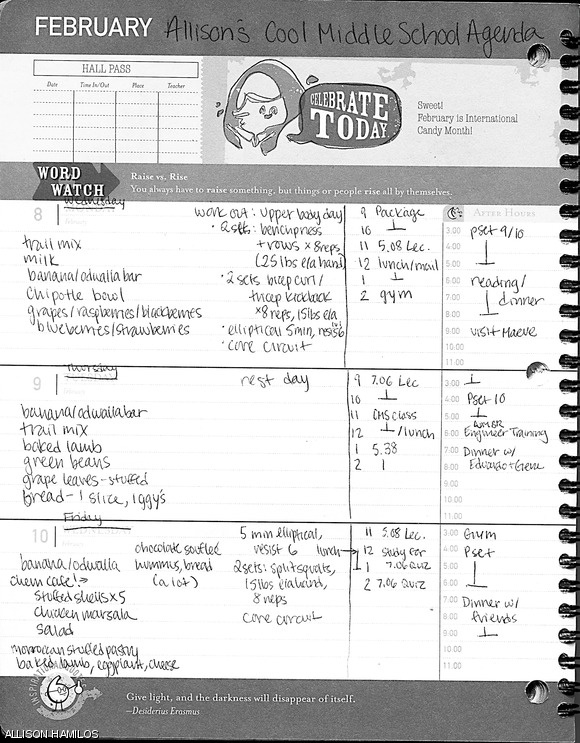 FEBRUARY Allison's Cool Middle School Agenda
HALL PASS
Date Time In/Out Place Teacher
CELEBRATE
TODAY
Sweet!
February is International
Candy Month!
WORD
WATCH
Raise vs. Rise
You always have to raise something, but things or people rise all by themselves.
8 Wednesday
trail mix
milk
banana/odwalla bar
Chipotle bowl
grapes/raspberries/blackberries
blueberries/strawberries
work out: upper body day
• 2 sets: benchpress
+ rows × 8 reps
(25 lbs ea hand)
• 2 sets bicep curl/
tricep kickback
× 8 reps, 15 lbs e/a
• elliptical 5 min, resis 6
• core circuit
9 Package
10
11 5.08 Lec.
12 lunch/mail
1
2 gym
AFTER HOURS
3:00 Pset 9/10
4:00
5:00
6:00 reading/
7:00 dinner
8:00
9:00 visit Maeve
10:00
11:00
9 Thursday
banana/odwalla bar
trail mix
baked lamb
green beans
grape leaves - stuffed
bread - 1 slice, Iggy's
rest day
9 7.06 Lec
10
11 CMS class
12 /lunch
1 5.38
2
3:00
4:00 Pset 10
5:00 WMBR
6:00 Engineer Training
7:00 Dinner w/
8:00 Eduardo + Gene
9:00
10:00
11:00
10 Friday
banana/odwalla
chem cafe! →
stuffed shells x 5
chicken marsala
salad
moroccan stuffed pastry
baked lamb, eggplant, cheese
chocolate souffle
hummus, bread
(a lot)
5 min elliptical,
resist 6
2 sets: splitsquats,
15 lbs ea hand,
8 reps
core circuit
lunch →
11 5.08 Lec.
12 study for
1 7.06 Quiz
2 7.06 Quiz
3:00 Gym
4:00 Pset
5:00
6:00
7:00 Dinner w/
8:00 friends
9:00
10:00
11:00
Give light, and the darkness will disappear of itself.
—Desiderius Erasmus
ALLISON HAMILOS